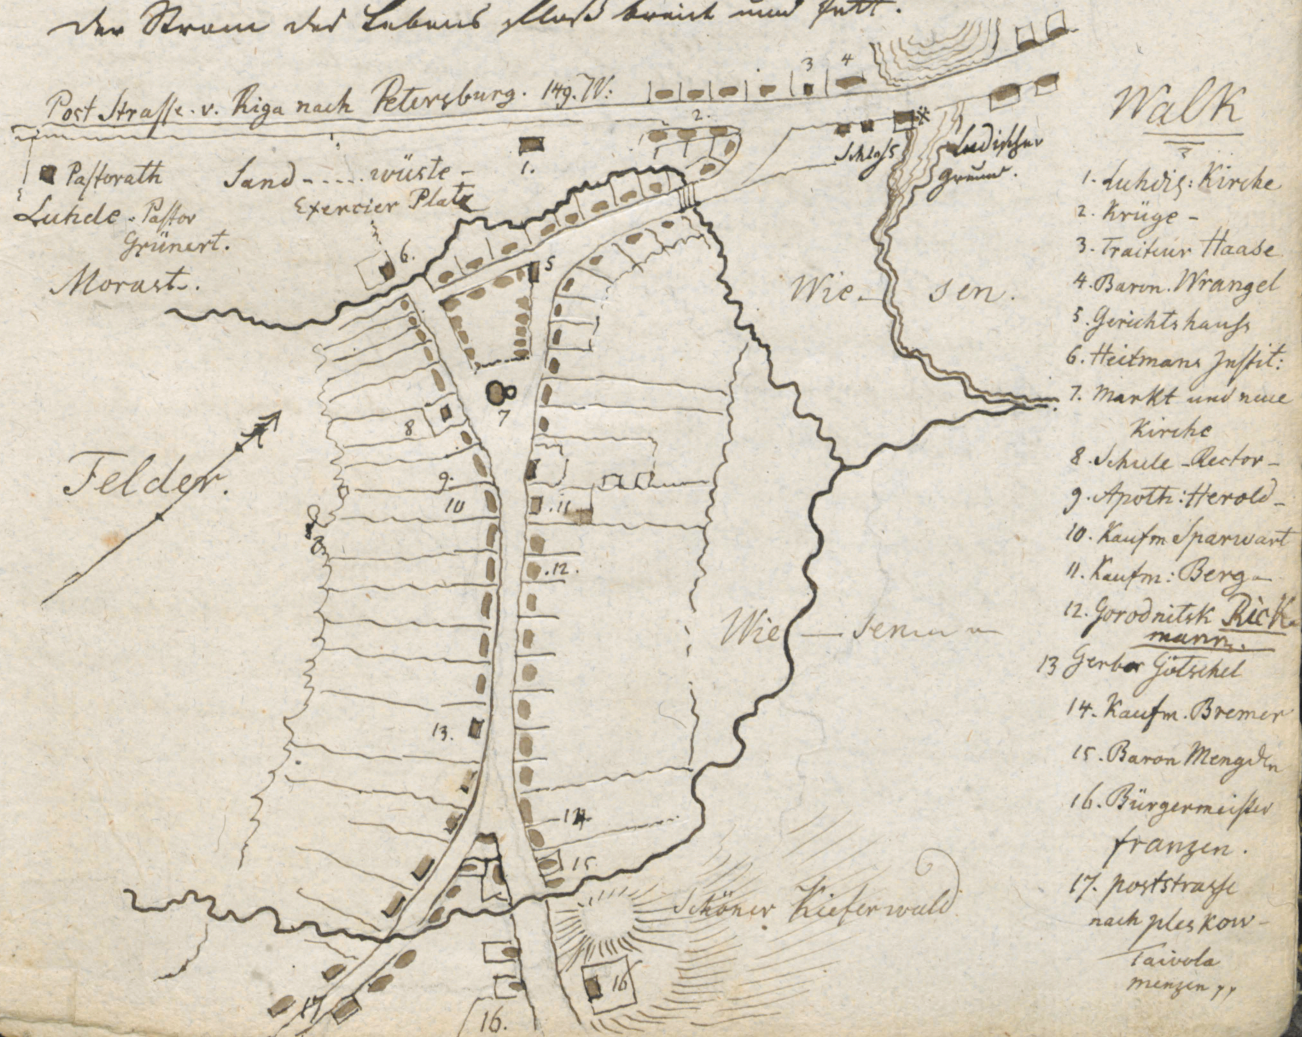 Der Strom des Lebens floß breit und fett.
Post Strasse. v. Riga nach Petersburg. 149. W:
3
4
2.
1.
Pastorath
Sand - .... wüste -
Exercier Platz
Luhde - Pastor
Grünert.
Morast.
Schloss
Ludischer
grund.
6.
5
7
8
9.
10
11
12.
13.
14
15
16
16.
17
Felder.
Wie - sen.
Wie - sen
Schöner Kieferwald
Walk
1. Luhdis: Kirche
2. Krüge -
3. Traiteur Haase
4. Baron. Wrangel
5. Gerichtshauss
6. Heitmans Instit:
7. Markt und neue
Kirche
8. Schule - Rector -
9. Apoth: Herold -
10. Kaufm Sparwart
11. Kaufm: Berg -
12. Gorodnitsk Rick-
mann.
13 Gerber Götschel
14. Kaufm. Bremer
15. Baron Mengden
16. Bürgermeister
franzen.
17. poststrasse
nach pleskow -
Taivola
menzen